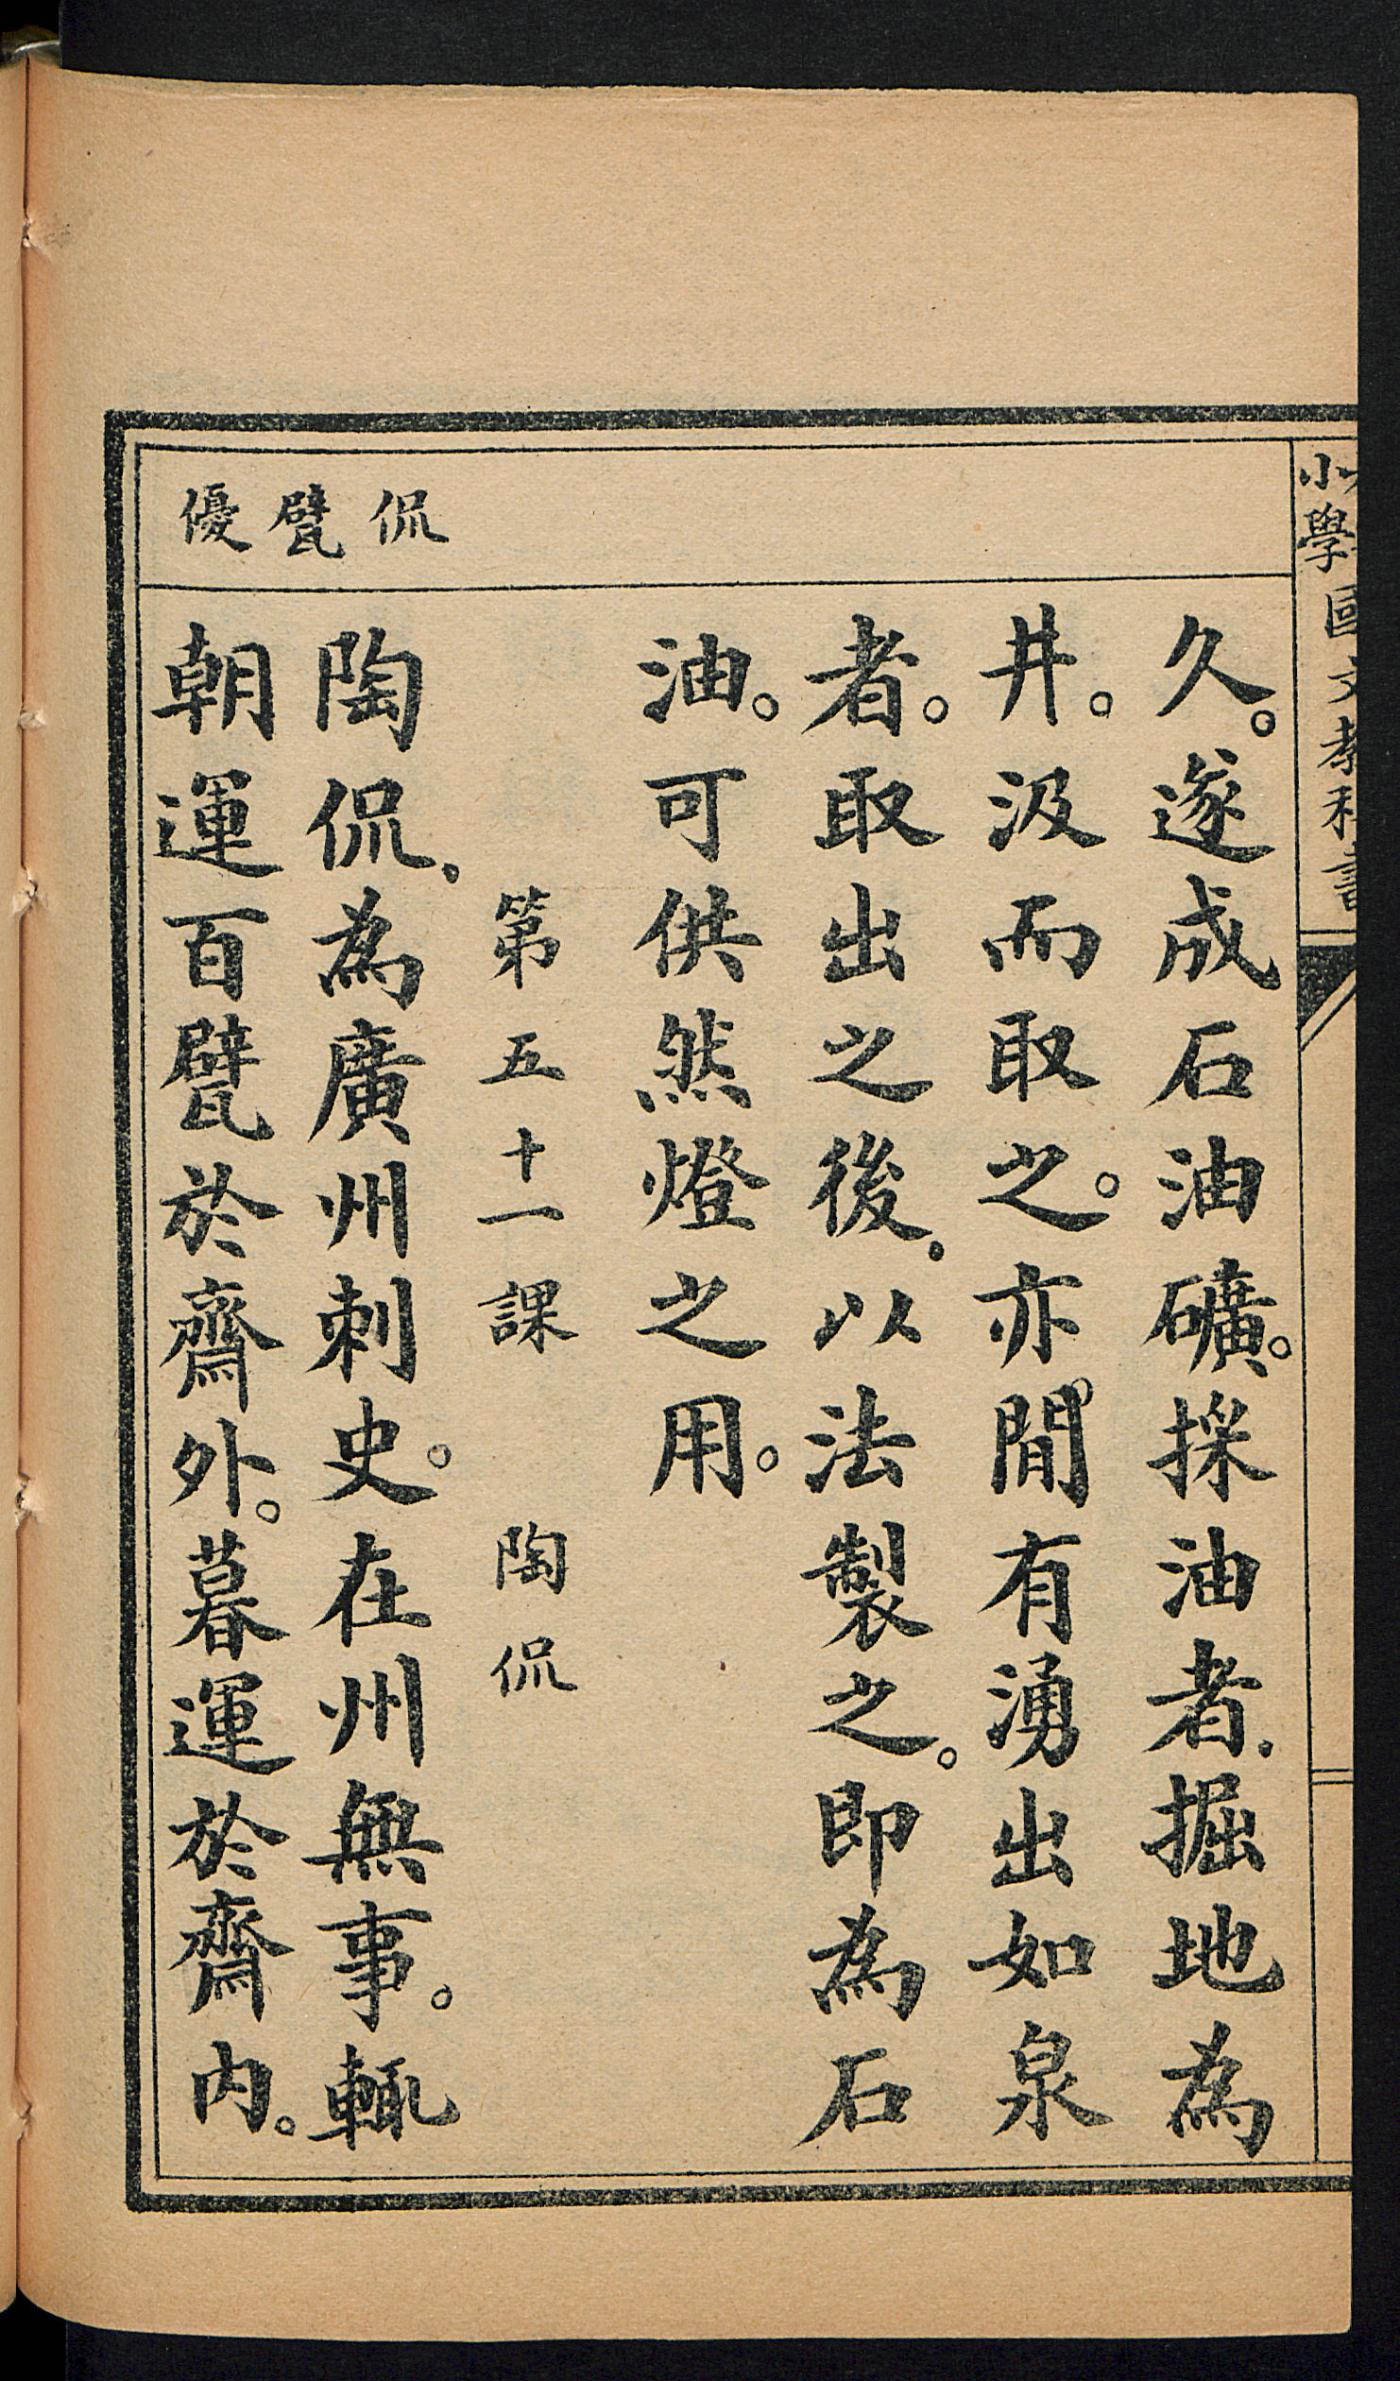 小學國文教科書
侃甓優
久。遂成石油礦。採油者.掘地為
井。汲而取之。亦。閒有湧出如泉
者。取出之後.以法製之。即為石
油。可供然燈之用。
第五十一課 陶侃
陶侃.為廣州刺史。在州無事。輒
朝運百甓於齋外。暮運於齋內。